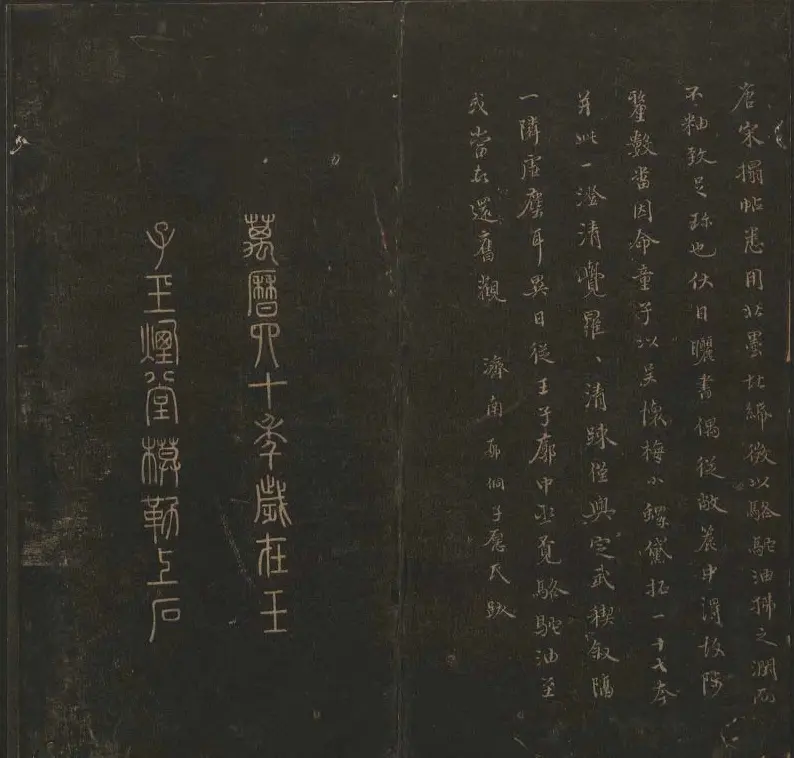 唐宋搨帖悉用松墨枇綿微以駱駝油拂之潤而
不粘致足珍也伏日曬書偶從敝簏中得故陟
釐數番因命童子以吴懷梅小螺黛拓一十七本
并此一澄清覺羅、清踈僅與定武禊叙隔
一隣虛塵耳異日從王子廓中丞覓駱駝油至
或當去還舊觀 濟南邢侗子愿氏跋
萬曆四十季歲在壬
子玉煙堂模勒上石